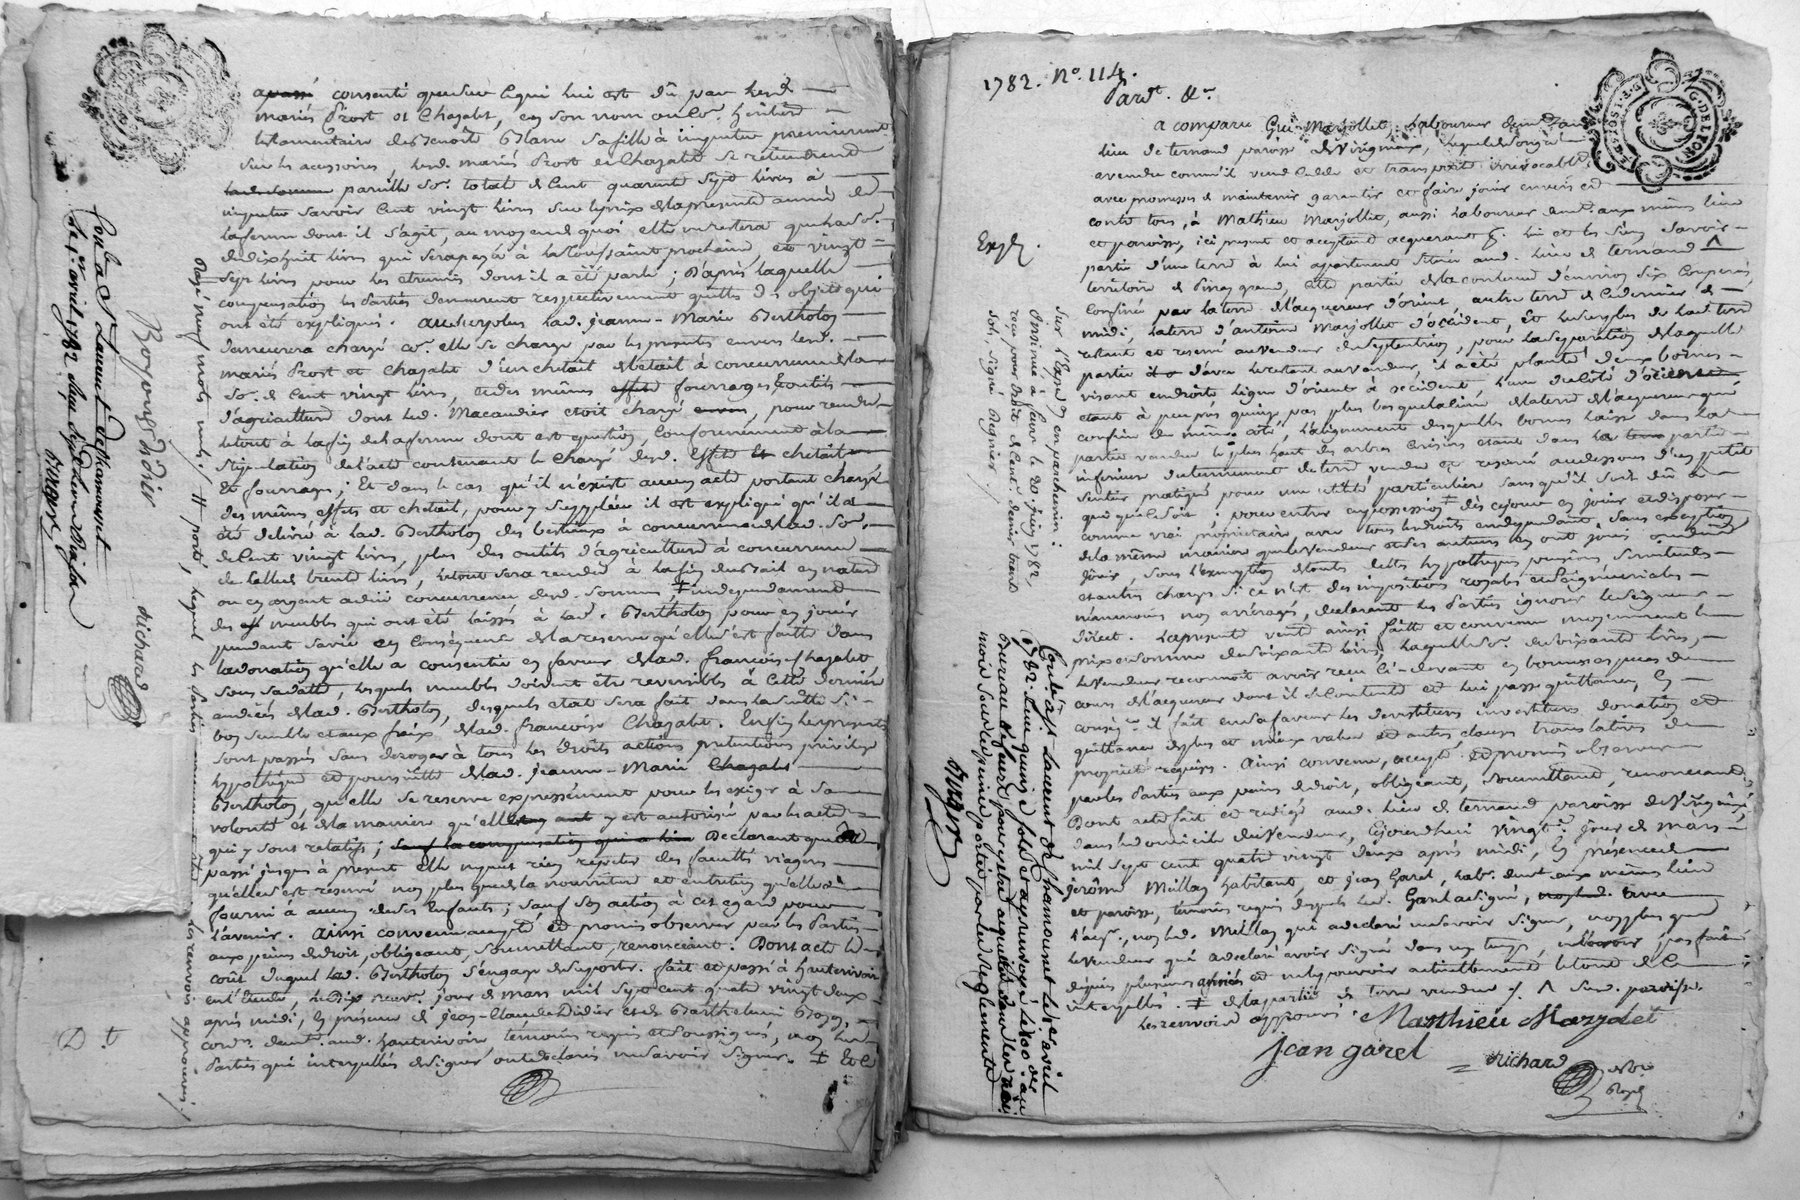 consenti que sur ce qui lui est dû par lesd.
mariés Prost et Chazalet, en son nom ou co. héritiere
testamentaire de Benoît Blanc sa fille à imputer premierement
sur les accessoires, lesd. mariés Prost et Chazalet se retiendront
pareille so. total de Cent quarente Sept Livres à
imputer savoir Cent vingt livres sur le prix de la presente année de
la ferme dont il s'agit, au moyen de quoi, elle ne restera que la so.
de dix huit livres qui sera payée à la Toussaint prochaine, et vingt
Sept livres pour les étrennes dont il a été parlé; D'après laquelle
compensation les Parties demeurent respectivement quittes des objets qui
ont été expliqués. au surplus lad. Jeanne-Marie Bertholon
demeurera chargée co. elle se charge par les presentes envers lesd.
mariés Prost et Chazalet d'un chetail de betail à concurrence de la
so. de Cent vingt livres, et des mêmes fourrages & outils
d'agriculture dont led. Macaudier etoit chargé pour rendre
le tout à la fin de la ferme dont est question, Conformement à la
Stipulation de l'acte contenant le Chargé desd. Effets et chetail
Et fourrages; Et dans le cas qu'il n'existe aucun acte portant chargé
des mêmes effets et chetail, pour y suppléer il est expliqué qu'il a
été délivré à lad. Bertholon des bestiaux à concurrence de lad. so.
de Cent vingt livres, plus des outils d'agriculture à concurrence
de celle de trente livres, le tout sera rendu à la fin du Bail en nature
ou en argent a due concurrence desd. sommes, ‡ independamment
des meubles qui ont été laissés à lad. Bertholon pour en jouir
pendant sa vie en Conséquence de la reserve qu'elle s'est faitte dans
la donation qu'elle a consentie en faveur de lad. françoise Chazalet,
sous sa datte, lesquels meubles doivent être reversibles à Cette derniere
au décès de lad. Bertholon, desquels etat sera fait dans la suitte si
bon semble et aux fraix de lad. françoise Chazalet. Enfin les presentes
sont passées sans deroger à tous les droits actions pretentions privileges
hypotheques et poursuittes de lad. Jeanne-Marie Chazalet
Bertholon qu'elle se reserve expressément pour les exiger à sa
volonté et de la maniere qu'elle y est autorisée par les actes
qui y sont relatifs; sauf la compensation qui a lieu Declarant que du
passé jusques à present elle n'entend rien repeter des facultés viageres
qu'elle s'est reservé non plus que de la nourriture et entretien qu'elle a
fourni à aucun de ses Enfants; sauf son action à cet egard pour
l'avenir. Ainsi convenu accepté et promis observer par les Parties
aux peines de droit, obligeant, soumettant, renonceant. Dont acte le
coût duquel lad. Bertholon s'engage de supporter. fait et passé à hauterivoire
en l'etude, le dix neuv. jour de mars mil sept cent quatre vingt deux
après midi, En présence de Jean-Claude Didier et de Barthelemi Boyon,
cord. demt. aud. hauterivoire témoins requis et soussignés, non les
Parties qui interpellées de signer ont déclaré ne savoir signer. ‡ Et le
Boyon Didier
Richard
Rayé neuf mots nuls. // porté, lequel les Parties
les renvois approuvés
Con.lé à St Laurent de Chamousset
Le 1er avril 1782
Burgare
D. t
1782. No. 114.
Pardt. &c.
a comparu Marjollet Laboureur demt. au
lieu de ternand paroisse de Viregneux, lequel de son gré
a vendu comm'il vend cedde et transporte irrévocablt.
avec promesse de maintenir garantir et faire jouir envers et
contre tous, à Mathieu Marjollet, aussi Laboureur demt. aux mêmes lieu
et paroisse, ici present et acceptant acquereur p. lui et les siens savoir
partie d'une terre à lui appartenant située aud. lieu de ternand Λ
territoire de Pinay grand, cette partie de la contenue d'environ six Couperées
Confinée par la terre de l'acquereur d'orient, autre terre de Ce dernier de
midi; la terre d'antoine Marjollet d'occident, Et le surplus de lad. terre
restant et reservé au vendeur du septentrion, pour la separation de laquelle
partie d'avec le restant au vendeur, il a été planté deux bornes
visant en droite ligne d'orient à occident l'une du côté d'orient
etant à peu près quinze pas plus bas que la liziere de la terre de l'acquereur qui
confine du même côté, L'alignement desquelles bornes laisse dans la
partie vendue le plus haut des arbres Cerisiers etant dans la terre partie
inferieure du tenement de terre vendue et reservé au dessous d'un petit
sentier pratiqué pour une utilité particuliere sans qu'il soit dû à
qui que ce soit; pour entrer en possession ‡ dès ce jour en jouir et disposer
comme vrai proprietaire avec tous les droits en dependant, sans exception
de la même maniere que le vendeur et ses auteurs en ont joui ou dû en
jouir, sous l'exemption de toutes dettes hypotheques pensions servitudes
et autres charges si ce n'est des impositions royales et seigneuriales
néanmoins non arréragés, declarant les Parties ignorer le seigneur
direct. La present vente ainsi faitte et convenue moyennant le
prix et somme de soixante livres, laquelle so. de soixante livres,
le vendeur reconnoit avoir reçu Ci-devant en bonnes especes du
cours de l'acquereur dont il se Contente et lui passe quittance, En
conséqce. il fait en sa faveur les devestitures investitures donation et
quittance de plus et mieux value et autres clauses translatives de
proprieté requises. Ainsi convenu, accepté et promis observer
par les Parties aux peines de droit, obligeant, soumettant, renonceant.
Dont acte fait et redigé aud. Lieu de ternand paroisse de Viregneux,
dans le domicile du vendeur, ce jourd'hui vingt. jour de mars
mil sept cent quatre vingt deux après midi, En présence de
jérôme Meillan habitant, et jean Garel, Lab. demt. aux mêmes lieu
et paroisse, témoins requis desquels led. Garel a signé, avec
l'acqr., non led. Meillan qui a declaré ne savoir signer, non plus que
le vendeur qui a declaré avoir signé dans un temps, pas fait
depuis plusieurs années et ne le pouvoir actuellement le tout de ce
interpellés. ‡ de la partie de terre vendue /. Λ sud. paroisse
les renvois approuvés Matthieu Marjolet
jean garel = Richard
Expd.
Sur l'Expedn. en parchemin:
Insinué à feurs le 20 juin 1782,
reçu pour droit de Cent. denier trente
sols, signé Regnier./.
Con.lé à St Laurent de Chamousset Le 1er avril
1782. Reçu quinze sols et ay renvoyé Le 100.e au
Bureau de feurs pour y être acquitté dans les trois
mois sous les peines portées par les Reglements
Burgare